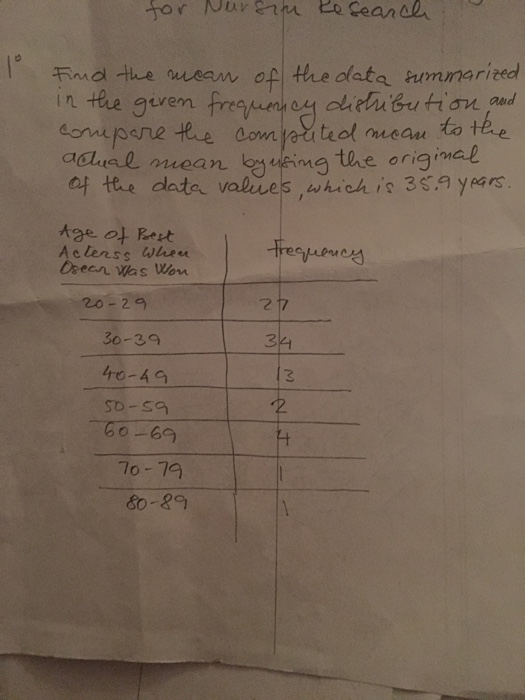 for Nursin Research
1° Find the mean of the data summarized
in the given frequency distribution, and
compare the computed mean to the
actual mean by using the original
of the data values, which is 35.9 years.
Age of Best
Actress When
Oscar Was Won
Frequency
20-29 27
30-39 34
40-49 13
50-59 2
60-69 4
70-79 1
80-89 1